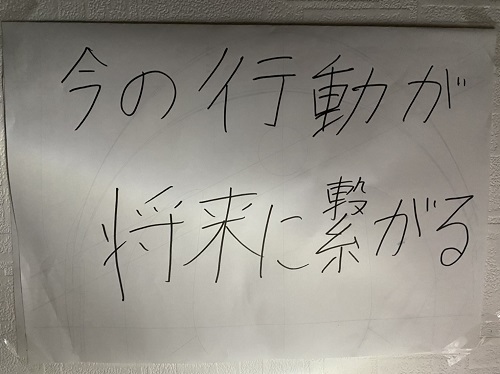 今の行動が
将来に繋がる